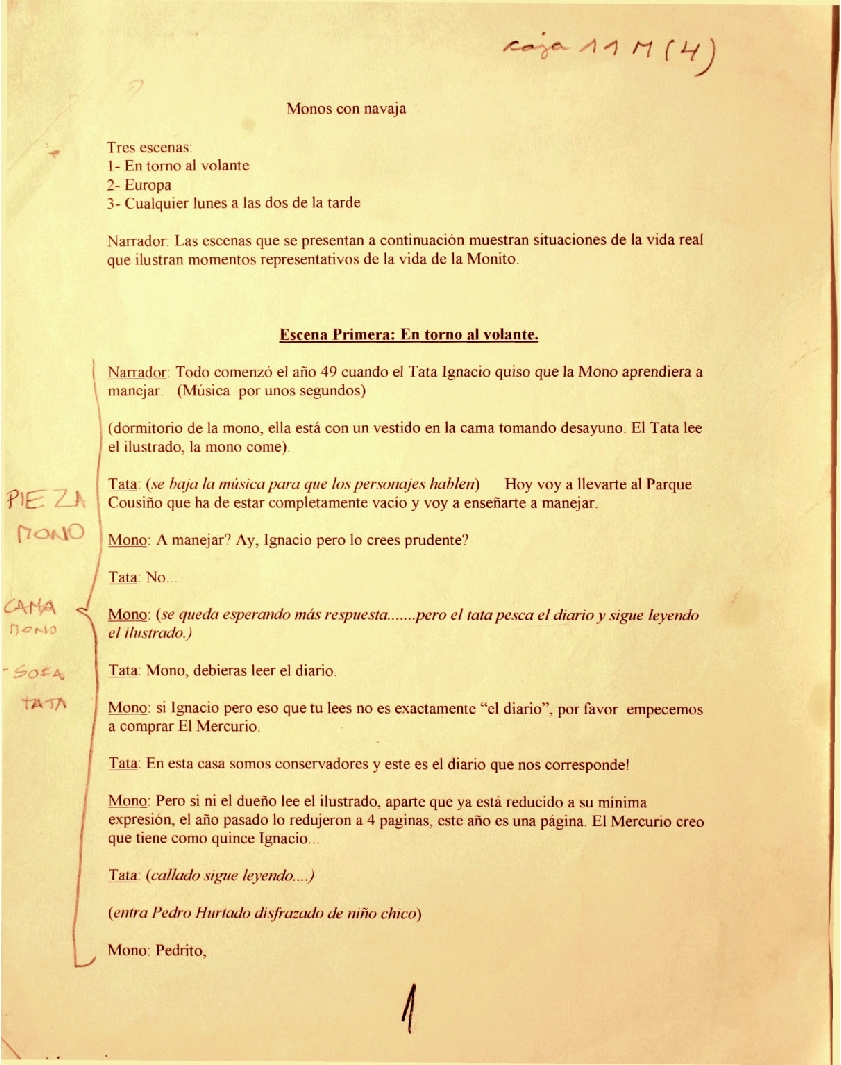 caja 11 M (4)
Monos con navaja
Tres escenas:
1- En torno al volante
2- Europa
3- Cualquier lunes a las dos de la tarde
Narrador: Las escenas que se presentan a continuación muestran situaciones de la vida real
que ilustran momentos representativos de la vida de la Monito.
Escena Primera: En torno al volante.
Narrador: Todo comenzó el año 49 cuando el Tata Ignacio quiso que la Mono aprendiera a
manejar. (Música por unos segundos)
(dormitorio de la mono, ella está con un vestido en la cama tomando desayuno. El Tata lee
el ilustrado, la mono come).
Tata: (se baja la música para que los personajes hablen) Hoy voy a llevarte al Parque
Cousiño que ha de estar completamente vacío y voy a enseñarte a manejar.
PIEZA
MONO
Mono: A manejar? Ay, Ignacio pero lo crees prudente?
Tata: No...
CAMA
MONO
Mono: (se queda esperando más respuesta.......pero el tata pesca el diario y sigue leyendo
el ilustrado.)
- SOFA
TATA
Tata: Mono, debieras leer el diario.
Mono: si Ignacio pero eso que tu lees no es exactamente “el diario”, por favor empecemos
a comprar El Mercurio.
Tata: En esta casa somos conservadores y este es el diario que nos corresponde!
Mono: Pero si ni el dueño lee el ilustrado, aparte que ya está reducido a su mínima
expresión, el año pasado lo redujeron a 4 paginas, este año es una página. El Mercurio creo
que tiene como quince Ignacio...
Tata: (callado sigue leyendo....)
(entra Pedro Hurtado disfrazado de niño chico)
Mono: Pedrito,
1